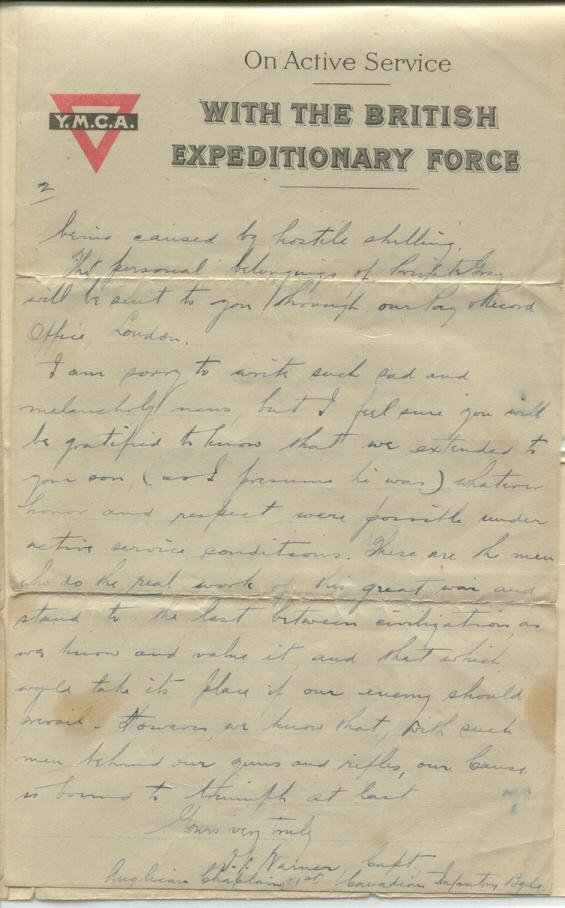 On Active Service
WITH THE BRITISH
EXPEDITIONARY FORCE
Y.M.C.A.
2
being caused by hostile shelling.
The personal belongings of Private Gray
will be sent to you through our Pay & Record
Office, London.
I am sorry to write such sad and
melancholy news, but I feel sure you will
be gratified to know that we extended to
your son, (as I presume he was) whatever
honor and respect were possible under
active service conditions. These are the men
who do the real work of this great war and
stand to the last between civilization, as
we know and value it, and that which
would take its place if our enemy should
prevail. However, we know that, with such
men behind our guns and rifles, our Cause
is bound to triumph at last
Yours very truly
Warner, Capt.
Anglican Chaplain, 1st Canadian Infantry Bgde.